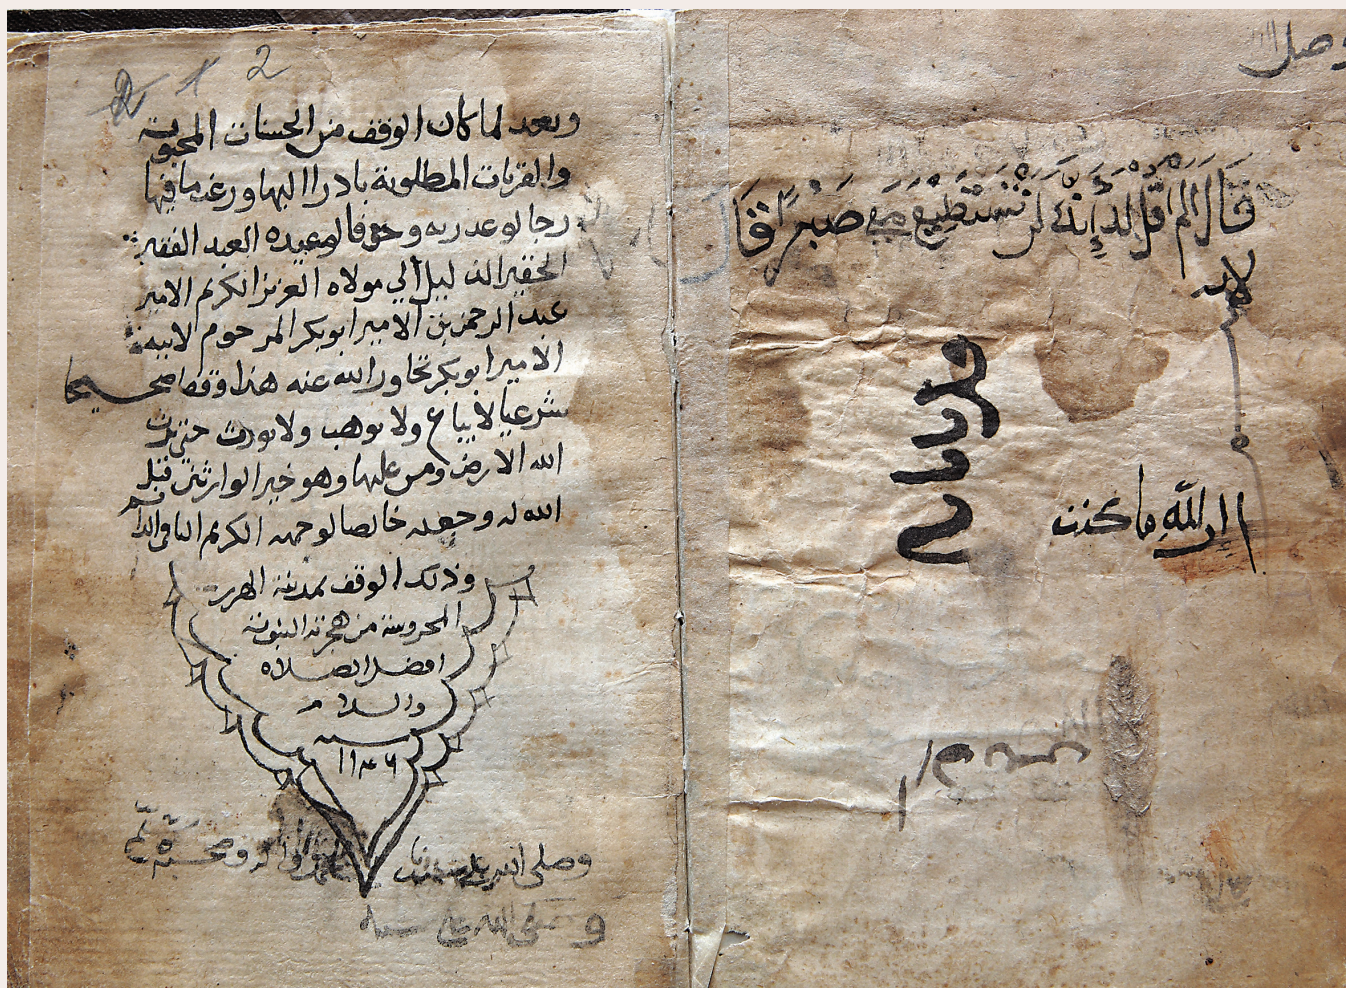 وصل
قال الم اقل لك إنك لن تستطيع معي صبرا قال
الى الله ما كنت
2
وبعد لما كان الوقف من الحسنات المحبوبة
والقربات المطلوبة بادر اليها ورغب ما فيها
رجا لوعد ربه وخوفا لوعيده العبد الفقير
الحقير الذليل الي مولاه العزيز الكريم الامير
عبد الرحمن بن الامير ابو بكر المرحوم لابيه
الامير ابو بكر تجاوز الله عنه هذا وقفا صحيحا
شرعيا لا يباع ولا يوهب ولا يورث حتى يرث
الله الارض ومن عليها وهو خير الوارثين تقبل
الله له وجعله خالصا لوجهه الكريم الباقي الدائم
وذلك الوقف بمدينة الهرر
المحروسة من هجرته النبوية
افضل الصلاه
والسلام
سنه
١١٤٦
وصلى الله على سيدنا وصحبه وسلم
وصلى الله على